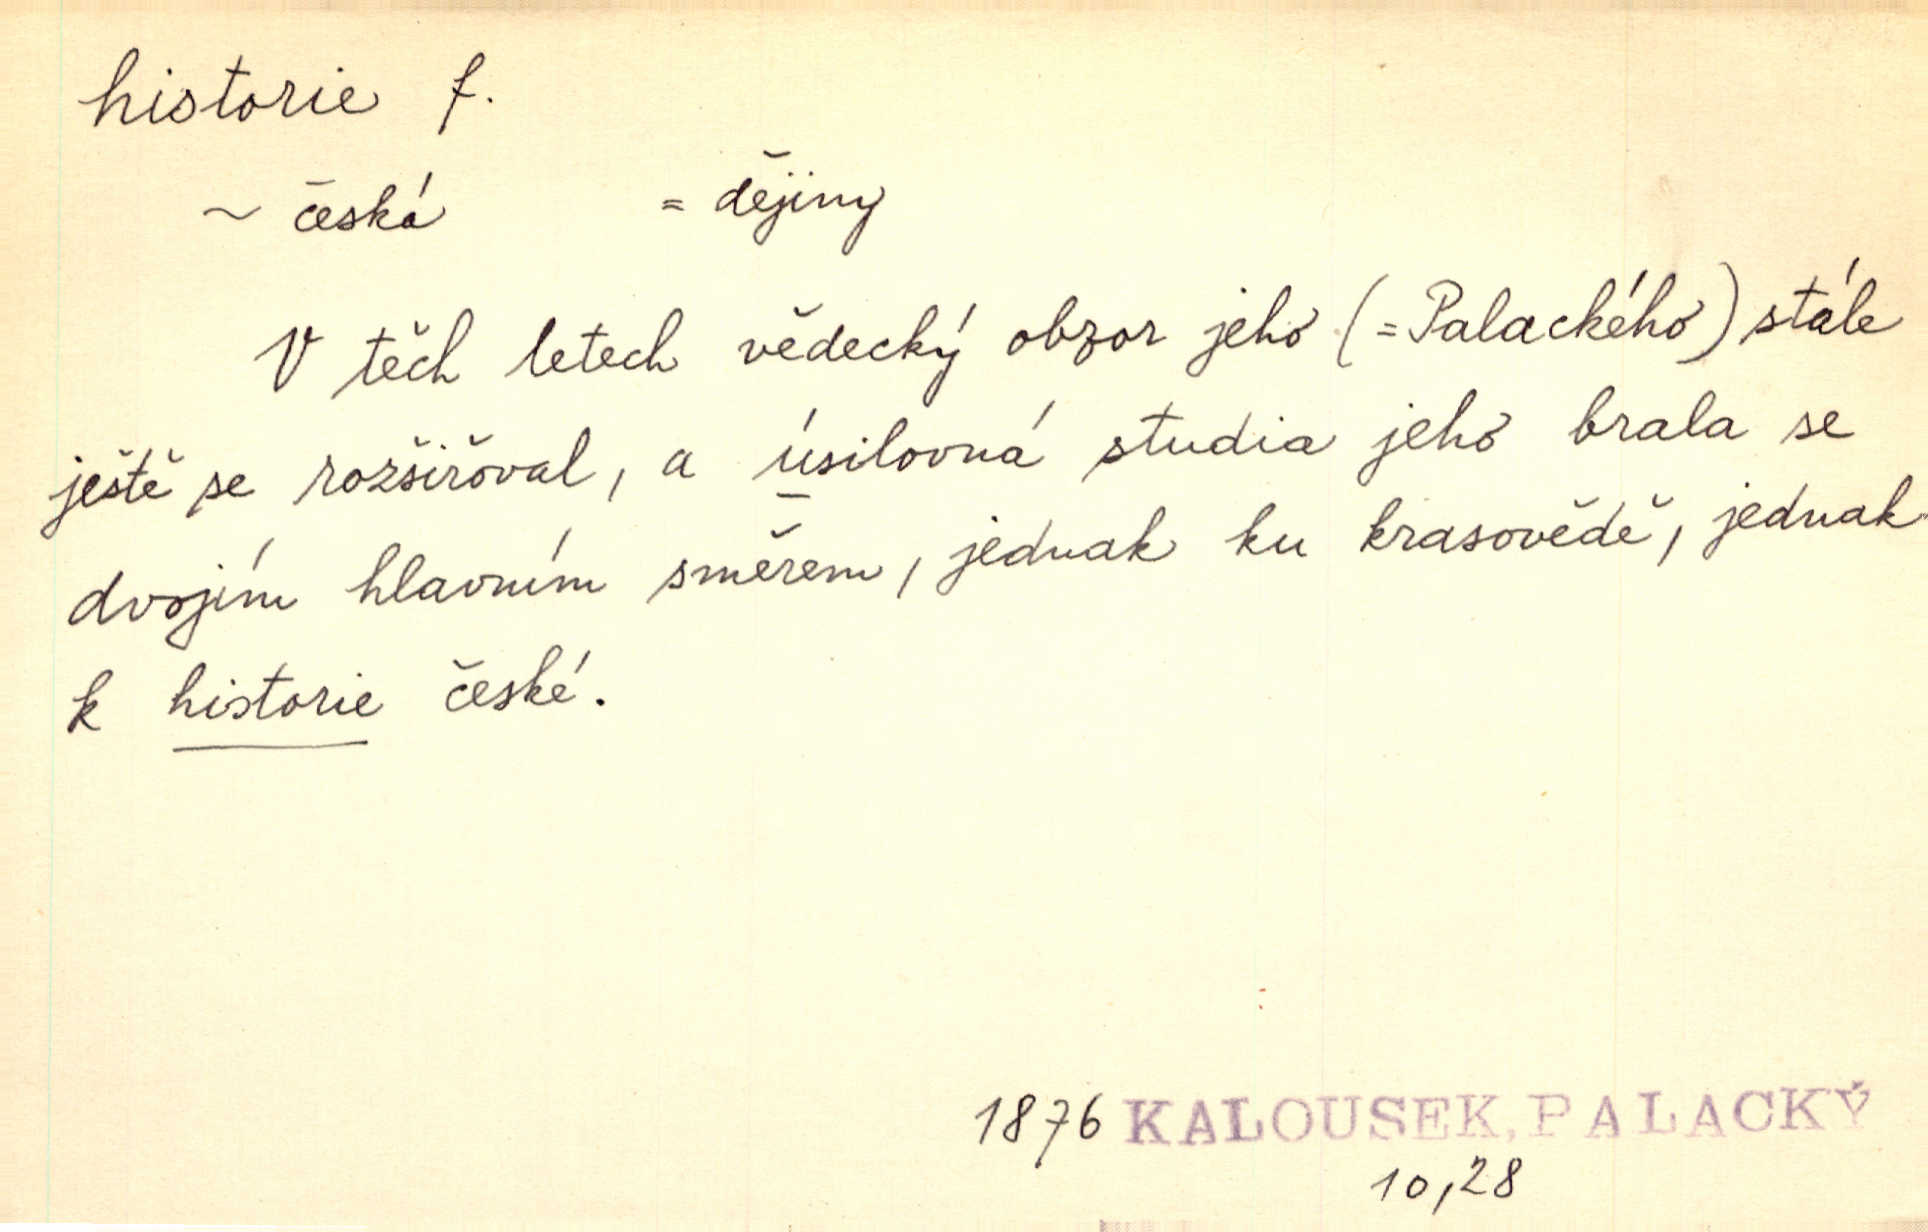 historie f.
~ česká = dějiny
V těch letech vědecký obzor jeho (=Palackého) stále
ještě se rozšiřoval, a úsilovná studia jeho brala se
dvojím hlavním směrem, jednak ku krasovědě, jednak
k historie české.
1876 KALOUSEK, PALACKÝ
10,28